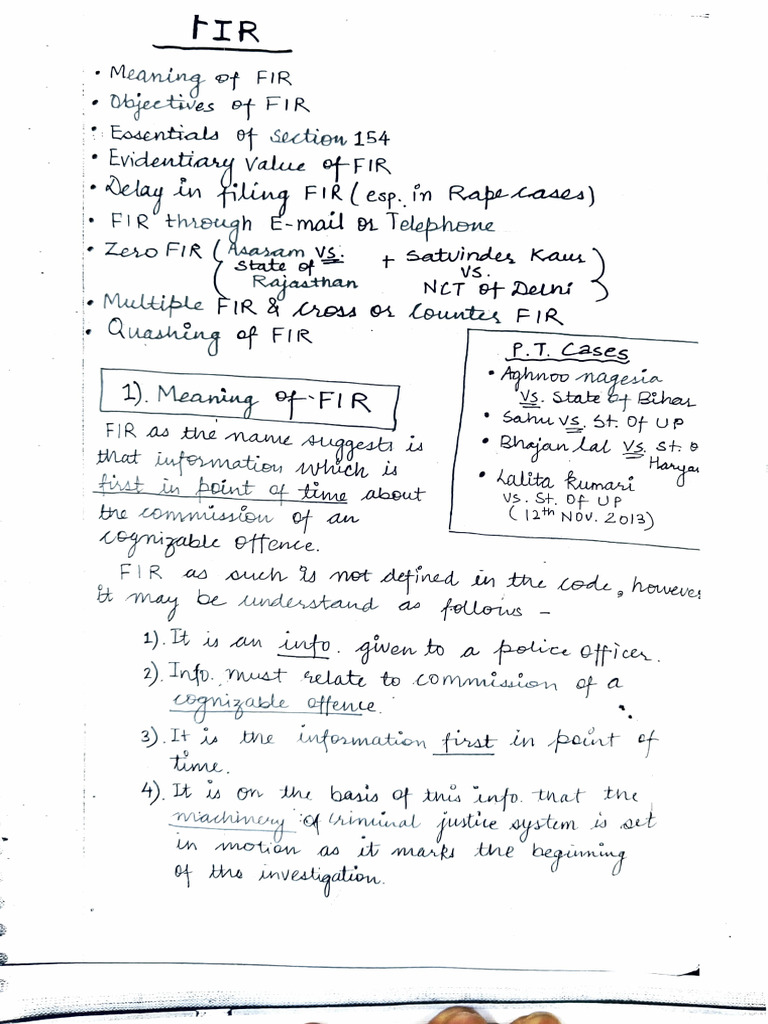 FIR
• Meaning of FIR
• Objectives of FIR
• Essentials of section 154
• Evidentiary value of FIR
• Delay in filing FIR (esp. in Rape cases)
• FIR through E-mail or Telephone
• Zero FIR (Asaram vs. State of Rajasthan + Satvinder Kaur vs. NCT of Delhi)
• Multiple FIR & cross or counter FIR
• Quashing of FIR
P.T. Cases
• Aghnoo nagesia
vs. State of Bihar
• Sahu vs. St. Of UP
• Bhajan lal vs. St. o
Harya
• Lalita kumari
vs. St. Of UP
(12th Nov. 2013)
1). Meaning of FIR
FIR as the name suggests is
that information which is
first in point of time about
the commission of an
cognizable offence.
FIR as such is not defined in the code, however
it may be understand as follows –
1). It is an info. given to a police officer.
2). Info. must relate to commission of a
cognizable offence.
3). It is the information first in point of
time.
4). It is on the basis of this info. that the
machinery of criminal justice system is set
in motion as it marks the beginning
of the investigation.